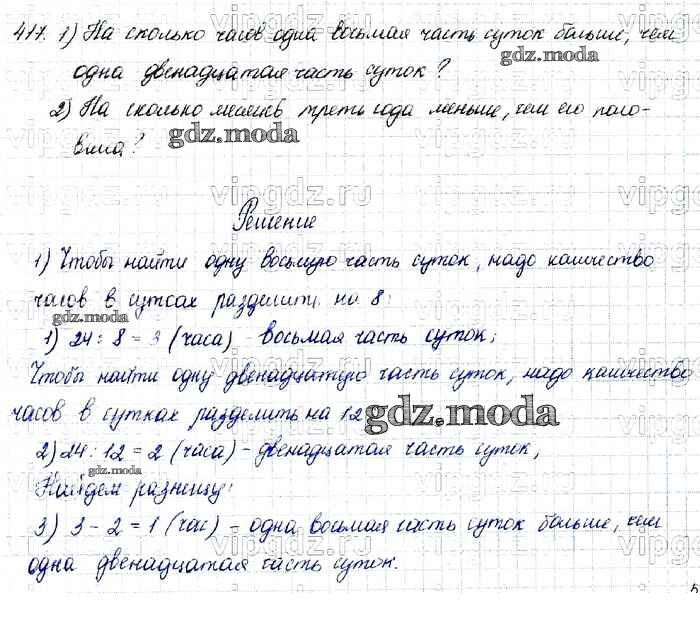 417. 1) На сколько часов одна восьмая часть суток больше, чем
одна двенадцатая часть суток?
2) На сколько месяцев треть года меньше, чем его поло-
вина?
Решение
1) Чтобы найти одну восьмую часть суток, надо количество
часов в сутках разделить на 8:
1) 24 : 8 = 3 (часа) - восьмая часть суток;
Чтобы найти одну двенадцатую часть суток, надо количество
часов в сутках разделить на 12
2) 24 : 12 = 2 (часа) - двенадцатая часть суток,
Найдем разницу:
3) 3 - 2 = 1 (час) - одна восьмая часть суток больше, чем
одна двенадцатая часть суток.
gdz.moda
gdz.moda
gdz.moda
gdz.moda
gdz.moda
vipgdz.ru